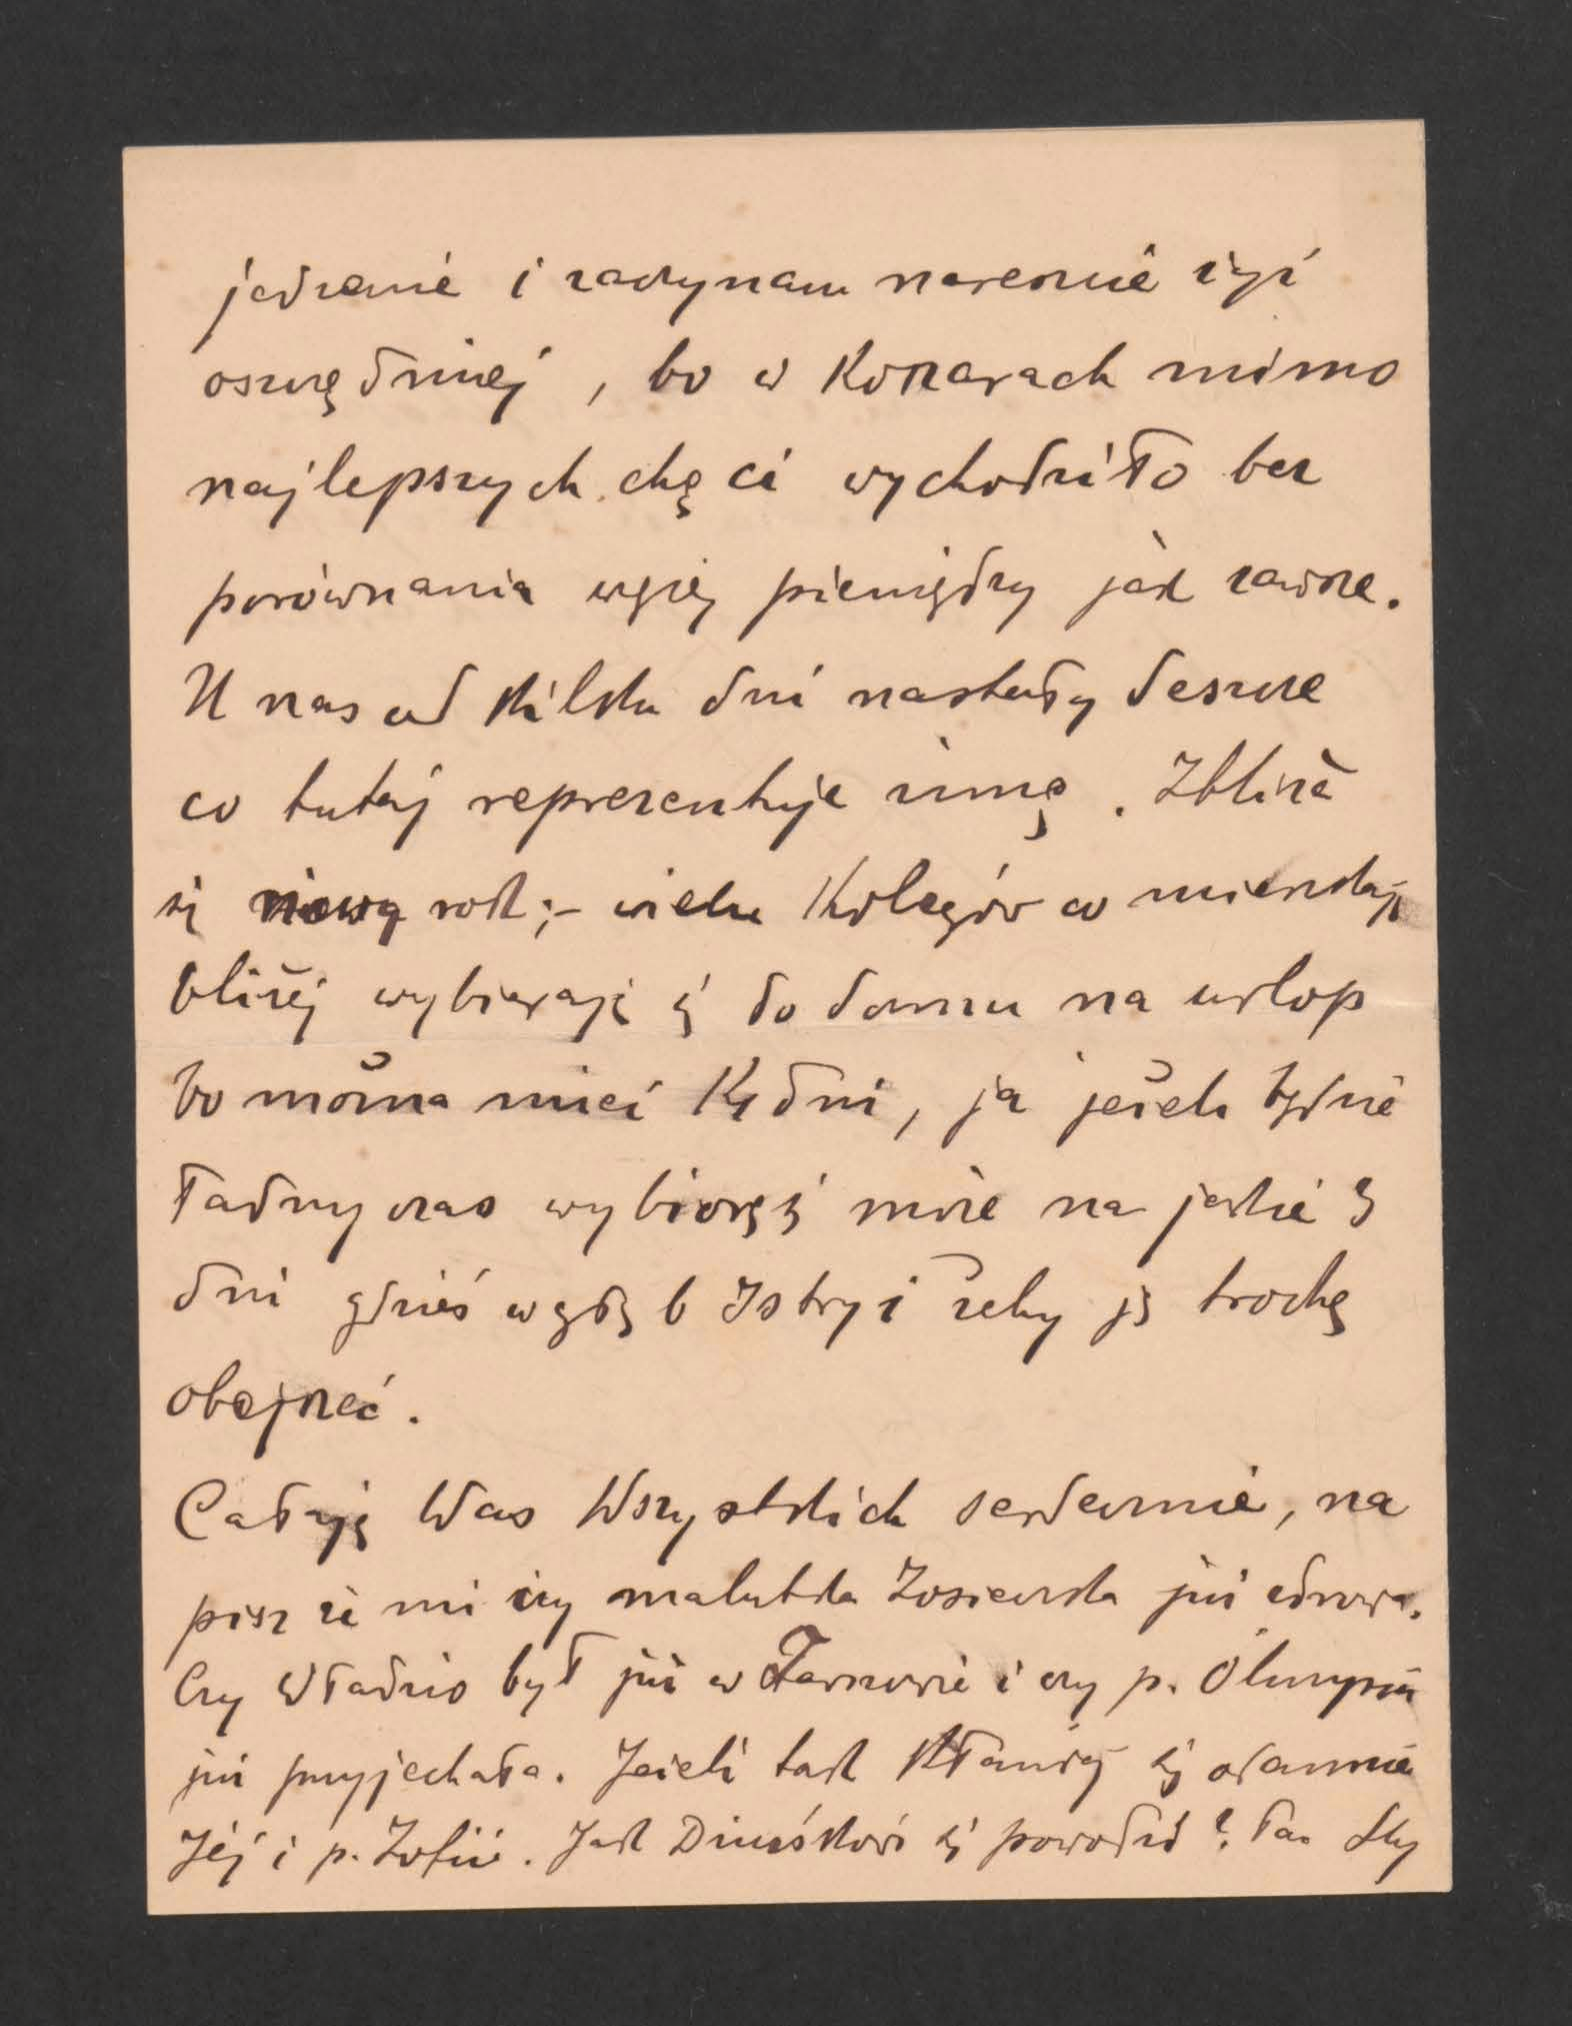 jedzenie i zaczynam nareszcie żyć
oszczędniej, bo w Koszarach mimo
najlepszych chęci wychodziło bez
porównania więcej pieniędzy jak zawsze.
U nas od kilku dni nastały deszcze
co tutaj reprezentuje zimę. Zbliża
się nowy rok;- wielu Kolegów co mieszkają
bliżej wybierają się do domu na urlop
bo można mieć dni, ja jeżeli będzie
ładny czas wybiorę się może na jakie 3
dni gdzieś w głąb Istryi żeby ją trochę
obejrzeć.
Całuję Was Wszystkich serdecznie, na
piszcie mi czy malutka Zosieczka już zdrowa.
Czy Władzio był już w Tarnowie i czy p. Olimpia
już przyjechała. Jeżeli tak kłaniaj się odemnie
Jéj i p. Zofii. Jak się powodzi?